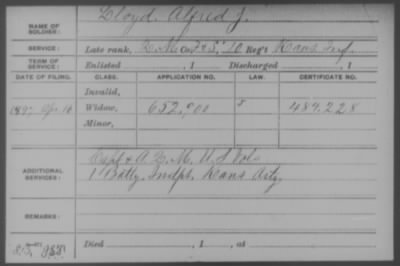 Lloyd, Alfred J.
NAME OF SOLDIER:
SERVICE: Late rank, R.Q.M. F & S, 10 Reg't Kans Inf.
TERM OF SERVICE: Enlisted , 1 Discharged , 1
DATE OF FILING. CLASS. APPLICATION NO. LAW. CERTIFICATE NO.
Invalid,
1897 Apr. 16 Widow, 652,900 484,228
Minor,
Capt & A. Q. M. U.S. Vols
ADDITIONAL SERVICES: 1" Batty. Indpt. Kans Arty.
REMARKS:
Died , 1 , at